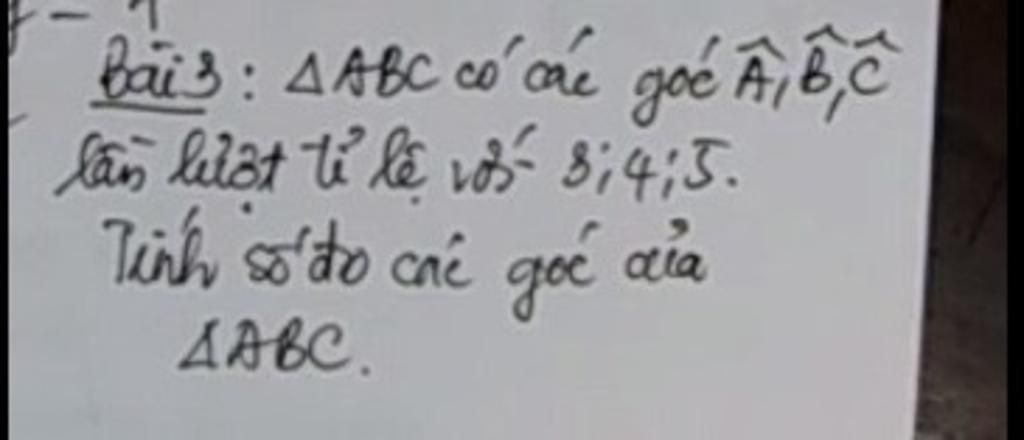 Bài 3 : ΔABC có các góc Â, B̂, Ĉ
lần lượt tỉ lệ với 3; 4; 5.
Tính số đo các góc của
ΔABC.